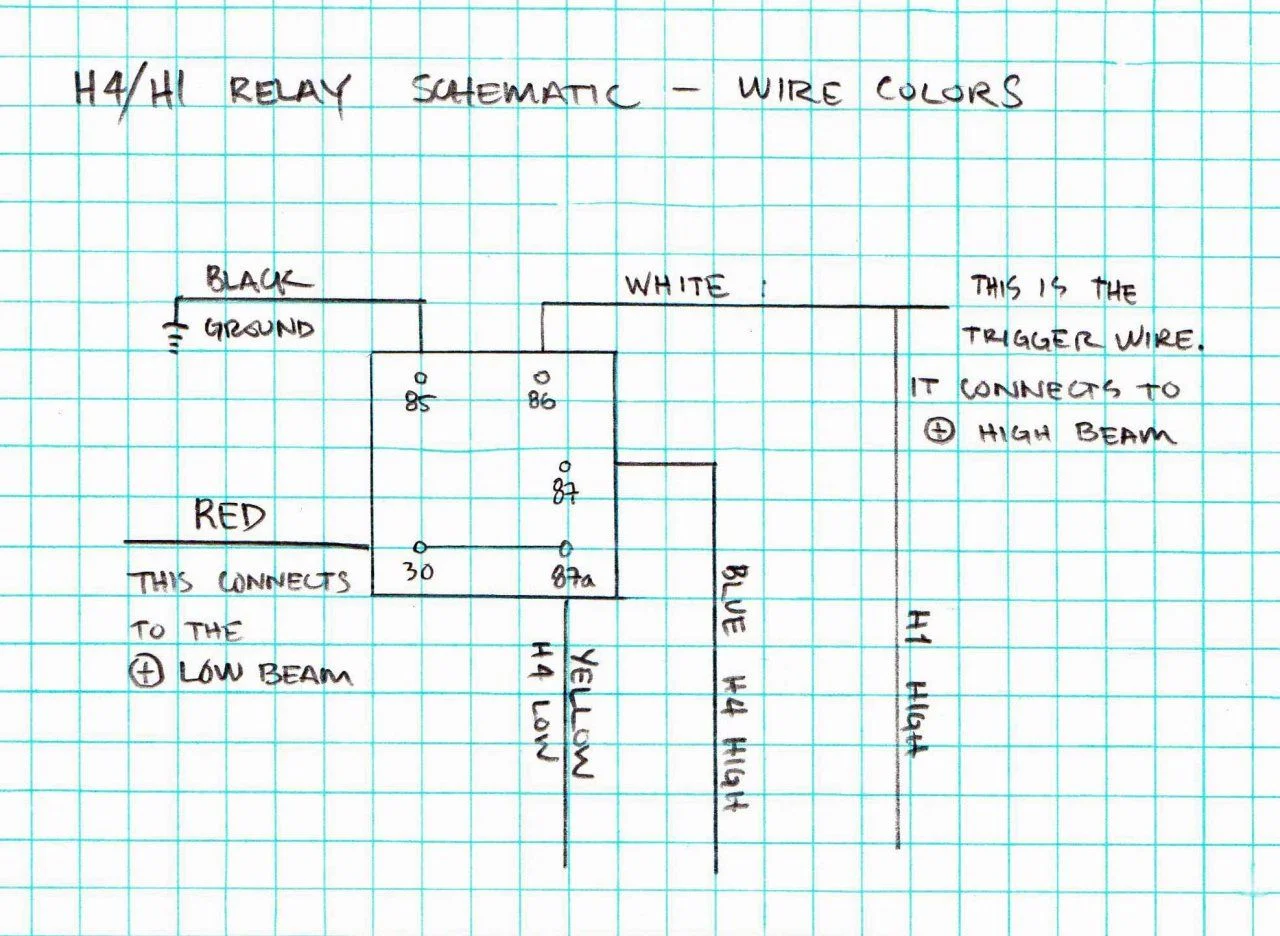 H4/H1 RELAY SCHEMATIC - WIRE COLORS
BLACK
GROUND
WHITE :
THIS IS THE
TRIGGER WIRE.
IT CONNECTS TO
⊕ HIGH BEAM
85
86
87
30
87a
RED
THIS CONNECTS
TO THE
⊕ LOW BEAM
YELLOW
H4 LOW
BLUE H4 HIGH
H1 HIGH